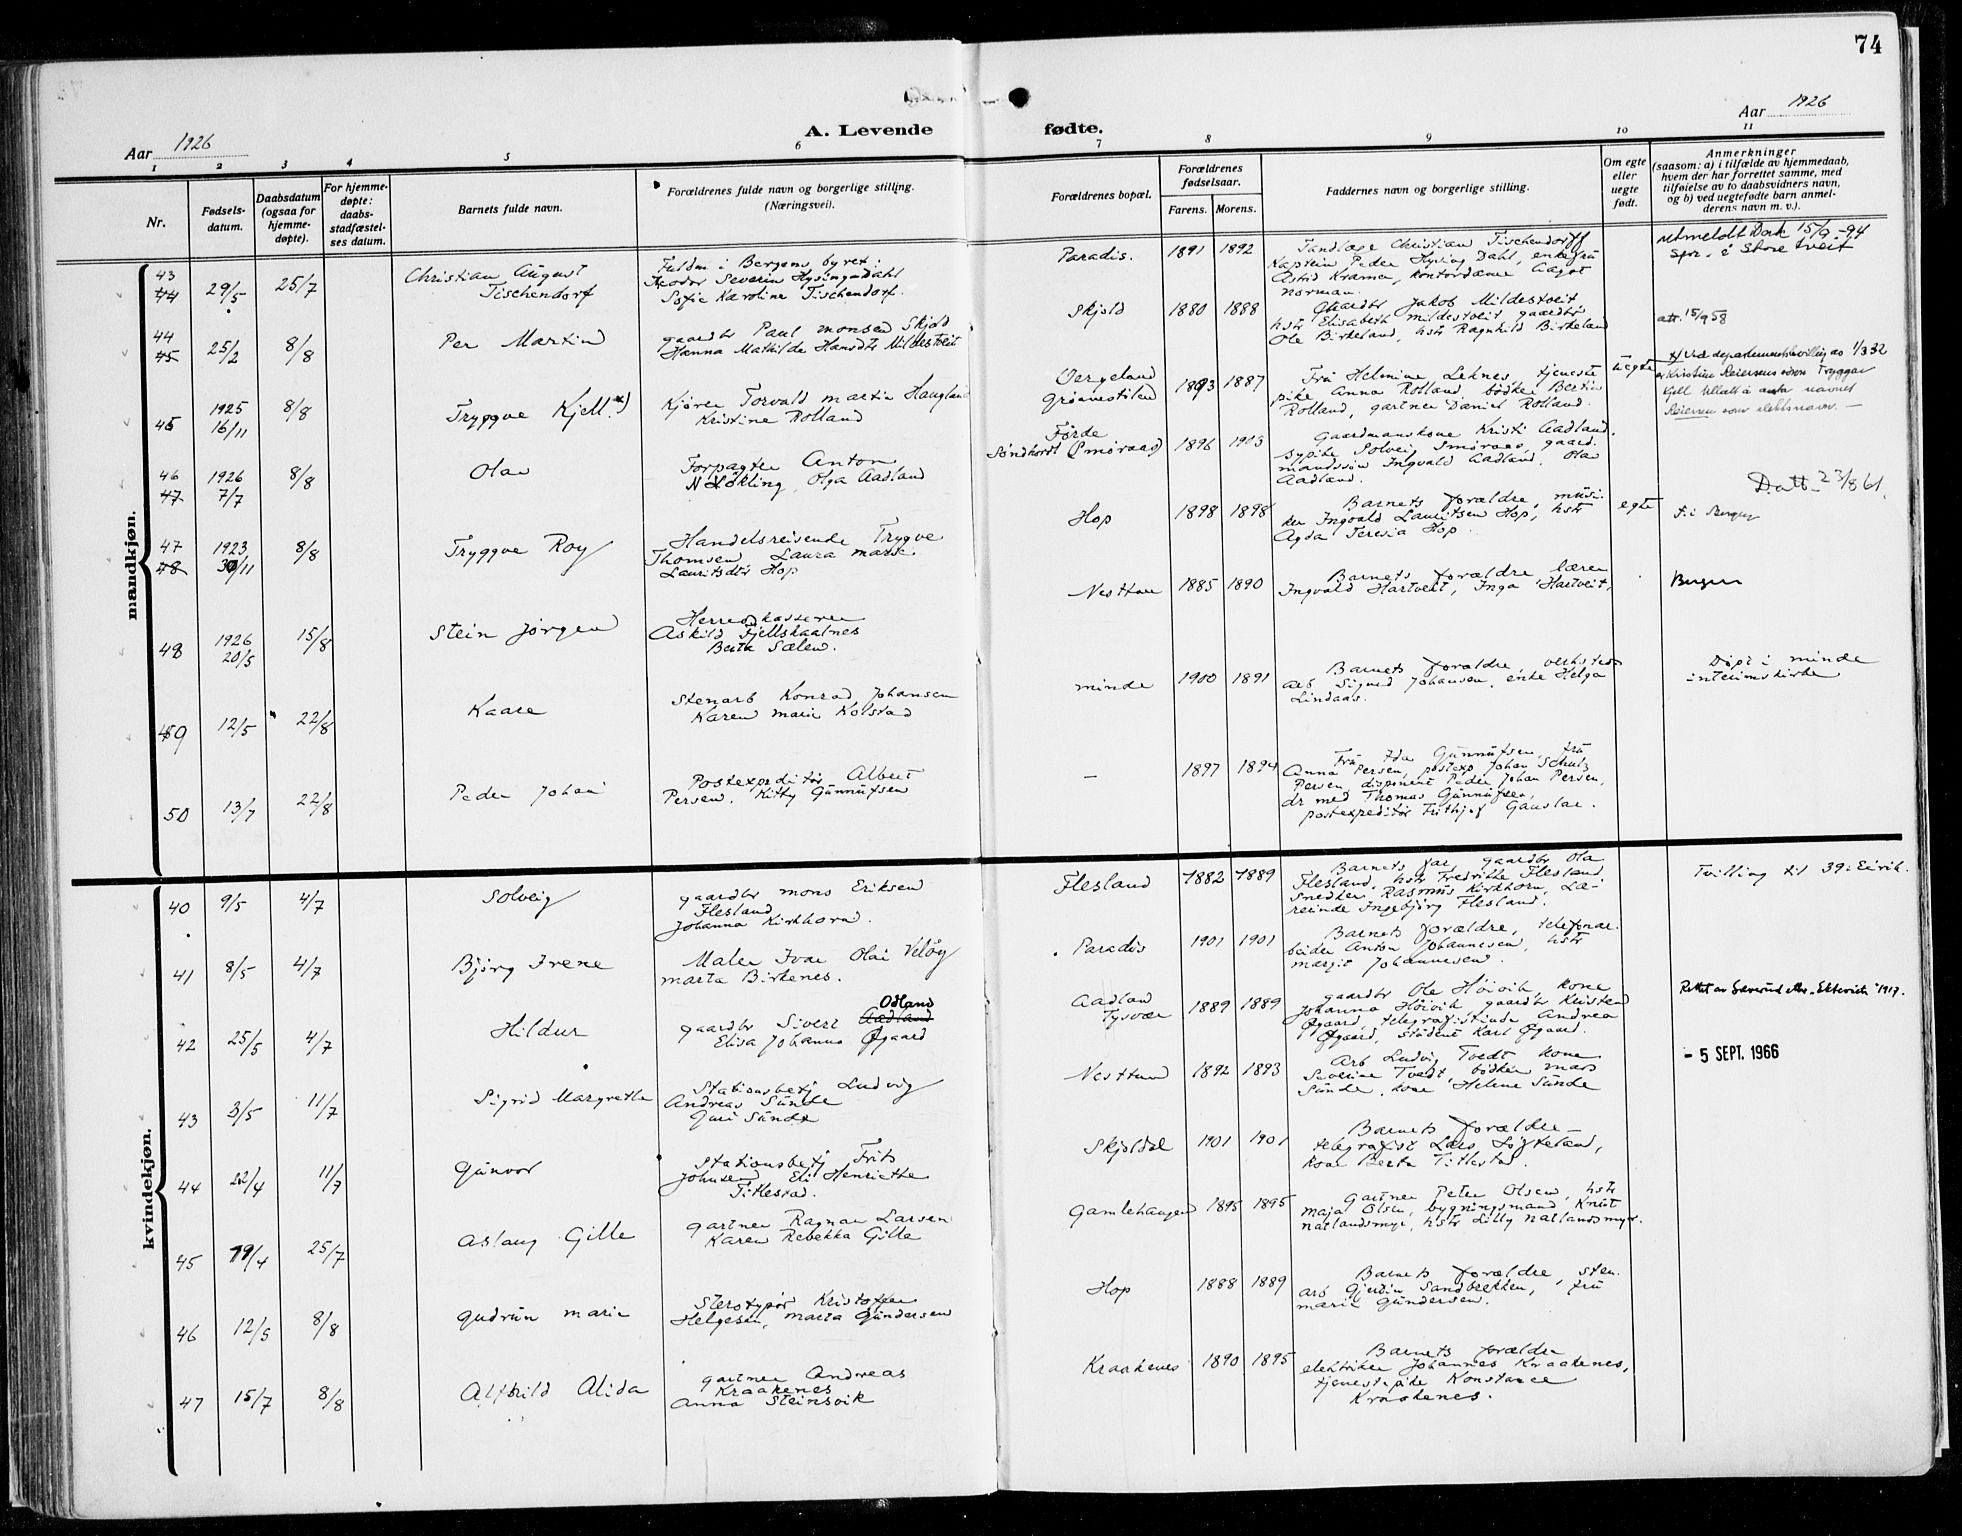 74
Aar 1926
A. Levende fødte.
Aar 1926
1 2 3 4 5 6 7 8 9 10 11
Nr.
Fødsels-
datum.
Daabsdatum
(ogsaa for
hjemme-
døpte).
For hjemme-
døpte:
daabs-
stadfæstel-
ses datum.
Barnets fulde navn.
Forældrenes fulde navn og borgerlige stilling.
(Næringsvei).
Forældrenes bopæl.
Forældrenes
fødselsaar.
Farens. Morens.
Faddernes navn og borgerlige stilling.
Om egte
eller
uegte
født.
Anmerkninger
(saasom: a) i tilfælde av hjemmedaab,
hvem der har forrettet samme, med
tilføielse av to daabsvidners navn,
og b) ved uegtefødte barn anmel-
derens navn m. v.).
mandkjøn.
43
44
29/5
25/7
Christian August
Tischendorf
Fuldm i Bergens byret:
Teodor Severin Hysing Dahl
Sofie Karoline Tischendorf.
Paradis.
1891 1892
Tandlæge Christian Tischendorff
Kaptein Peder Hysing Dahl, enkefru
Astrid Kramer, kontordame Aagot
Norman.
utmeldt Dnk 15/9-94
Spr. i Storetveit
44
45
25/2
8/8
Per Martin
gaardbr Paul Monsen Skjold
Hanna Mathilde Hansdtr Mildestveit
Skjold
1880 1888
Gaardbr Jakob Mildestveit,
hstr Elisabeth Mildestveit gaardbr
Ole Birkeland, hstr Ragnhild Birkeland
att. 15/9 58
45
1925
16/11
8/8
Tryggve Kjell. x)
Kjører Torvald Martin Haugland
Kristine Rolland
1893 1887
Fru Helmine Leknes tjeneste
pike Anna Rolland bødker Bertin
Rolland, gartner Daniel Rolland.
uegte
x) Ved departementsbevilling av 1/3 32
46
47
1926
7/7
8/8
Olav
Forpagter Anton
N Løkling, Olga Aadland
Førde
Søndhordl (Smøraas)
1896 1903
Gaardmannskone Kristi Aadland.
sypike Solvei Smøraas, gaard
mandssøn Ingvald Aadland. Ola
Aadland.
D.att. 23/8 61.
47
48
1923
30/11
8/8
Tryggve Roy
Handelsreisende Trygve
Thomsen Laura Marie
Lauritsdtr Hop
Hop
1898 1898
Barnets forældre, musi-
ker Ingvald Lauritsen Hop, hstr
Agda Teresia Hop.
egte
F. i Bergen
48
1926
20/5
15/8
Stein Jørgen
Herredskasserer
Askild Fjellskaalnes
Berta Sælen.
Nesttun
1885 1890
Barnets forældre lærer
Ingvald Hartveit, Inga Hartveit,
Bergen
49
12/5
22/8
Kaare
Stenarb Konrad Johansen
Karen Marie Kolstad
Minde
1900 1891
Barnets forældre, verksteds
arb Sigurd Johansen, enke Helga
Lindaas.
Døpt i Minde
interimskirke
50
13/7
22/8
Peder Johan
Postexpeditør Albert
Persen. Kitty Gunnufsen
—
1897 1894
Fru Ida Gunnufsen, fru
Anna Persen, postexp Johan Schulz
Persen, disponent Peder Johan Persen,
dr med Thomas Gunnufsen,
postexpeditør Frithjof Gauslaa.
kvindekjøn.
40
9/5
4/7
Solveig
gaardbr Mons Eriksen
Flesland
Johanna Kirkhorn.
Flesland
1882 1889
Barnets far, gaardbr Ola
Flesland, hstr Fredrikke Flesland,
Snedker Rasmus Kirkhorn, Læ-
rerinde Ingebjørg Flesland.
Tvilling til 39: Eirik.
41
8/5
4/7
Bjørg Irene
Maler Ivar Olai Veløy
Marta Birkenes.
Paradis
1901 1901
Barnets forældre, telefonar-
beider Anton Johannesen, hstr
Margit Johannesen.
42
25/5
4/7
Hildur
Odland
gaardbr Sivert Aadland
Elisa Johanna Øgaard
Aadland
Tysvær
1889 1889
gaardbr Ole Høivik, kone
Johanna Høivik gaardbr Kristen
Øgaard, telegrafistinde Andrea
Øgaard, student Karl Øgaard.
43
3/5
11/7
Sigrid Margrethe
Stationsbetj Ludvig
Andreas Sunde
Guri Sunde
Nesttun
1892 1893
Arb Ludvig Tvedt kone
Severine Tvedt, bødker Mars
Sunde, kone Helene Sunde
- 5 SEPT. 1966
44
22/4
11/7
Gunvor
Stationsbetj Frits
Johnsen Eli Henriette
Titlestad.
Skjoldal
1901 1901
Barnets forældre —
telegrafist Lars Løfteland,
kone Berta Titlestad.
45
19/4
25/7
Aslaug Gille
gartner Ragnar Larsen
Karen Rebekka Gille
Gamlehaugen
1895 1895
Gartner Peter Olsen, hstr
Maja Olsen, bygningsmand Knut
Natlandsmyr, hstr Lilly Natlandsmyr.
46
12/5
8/8
Gudrun Marie
Sterotypør Kristoffer
Helgesen, Marta Gundersen
Hop
1888 1889
Barnets forældre, sten.
arb Gjerdin Sandbrekken, fru
Marie Gundersen.
47
15/7
8/8
Alfhild Alida
gartner Andreas
Kraakenes
Anna Steinsvik
Kraakenes
1890 1895
Barnets forældre
elektriker Johannes Kraakenes,
tjenestepike Konstance
Kraakenes.